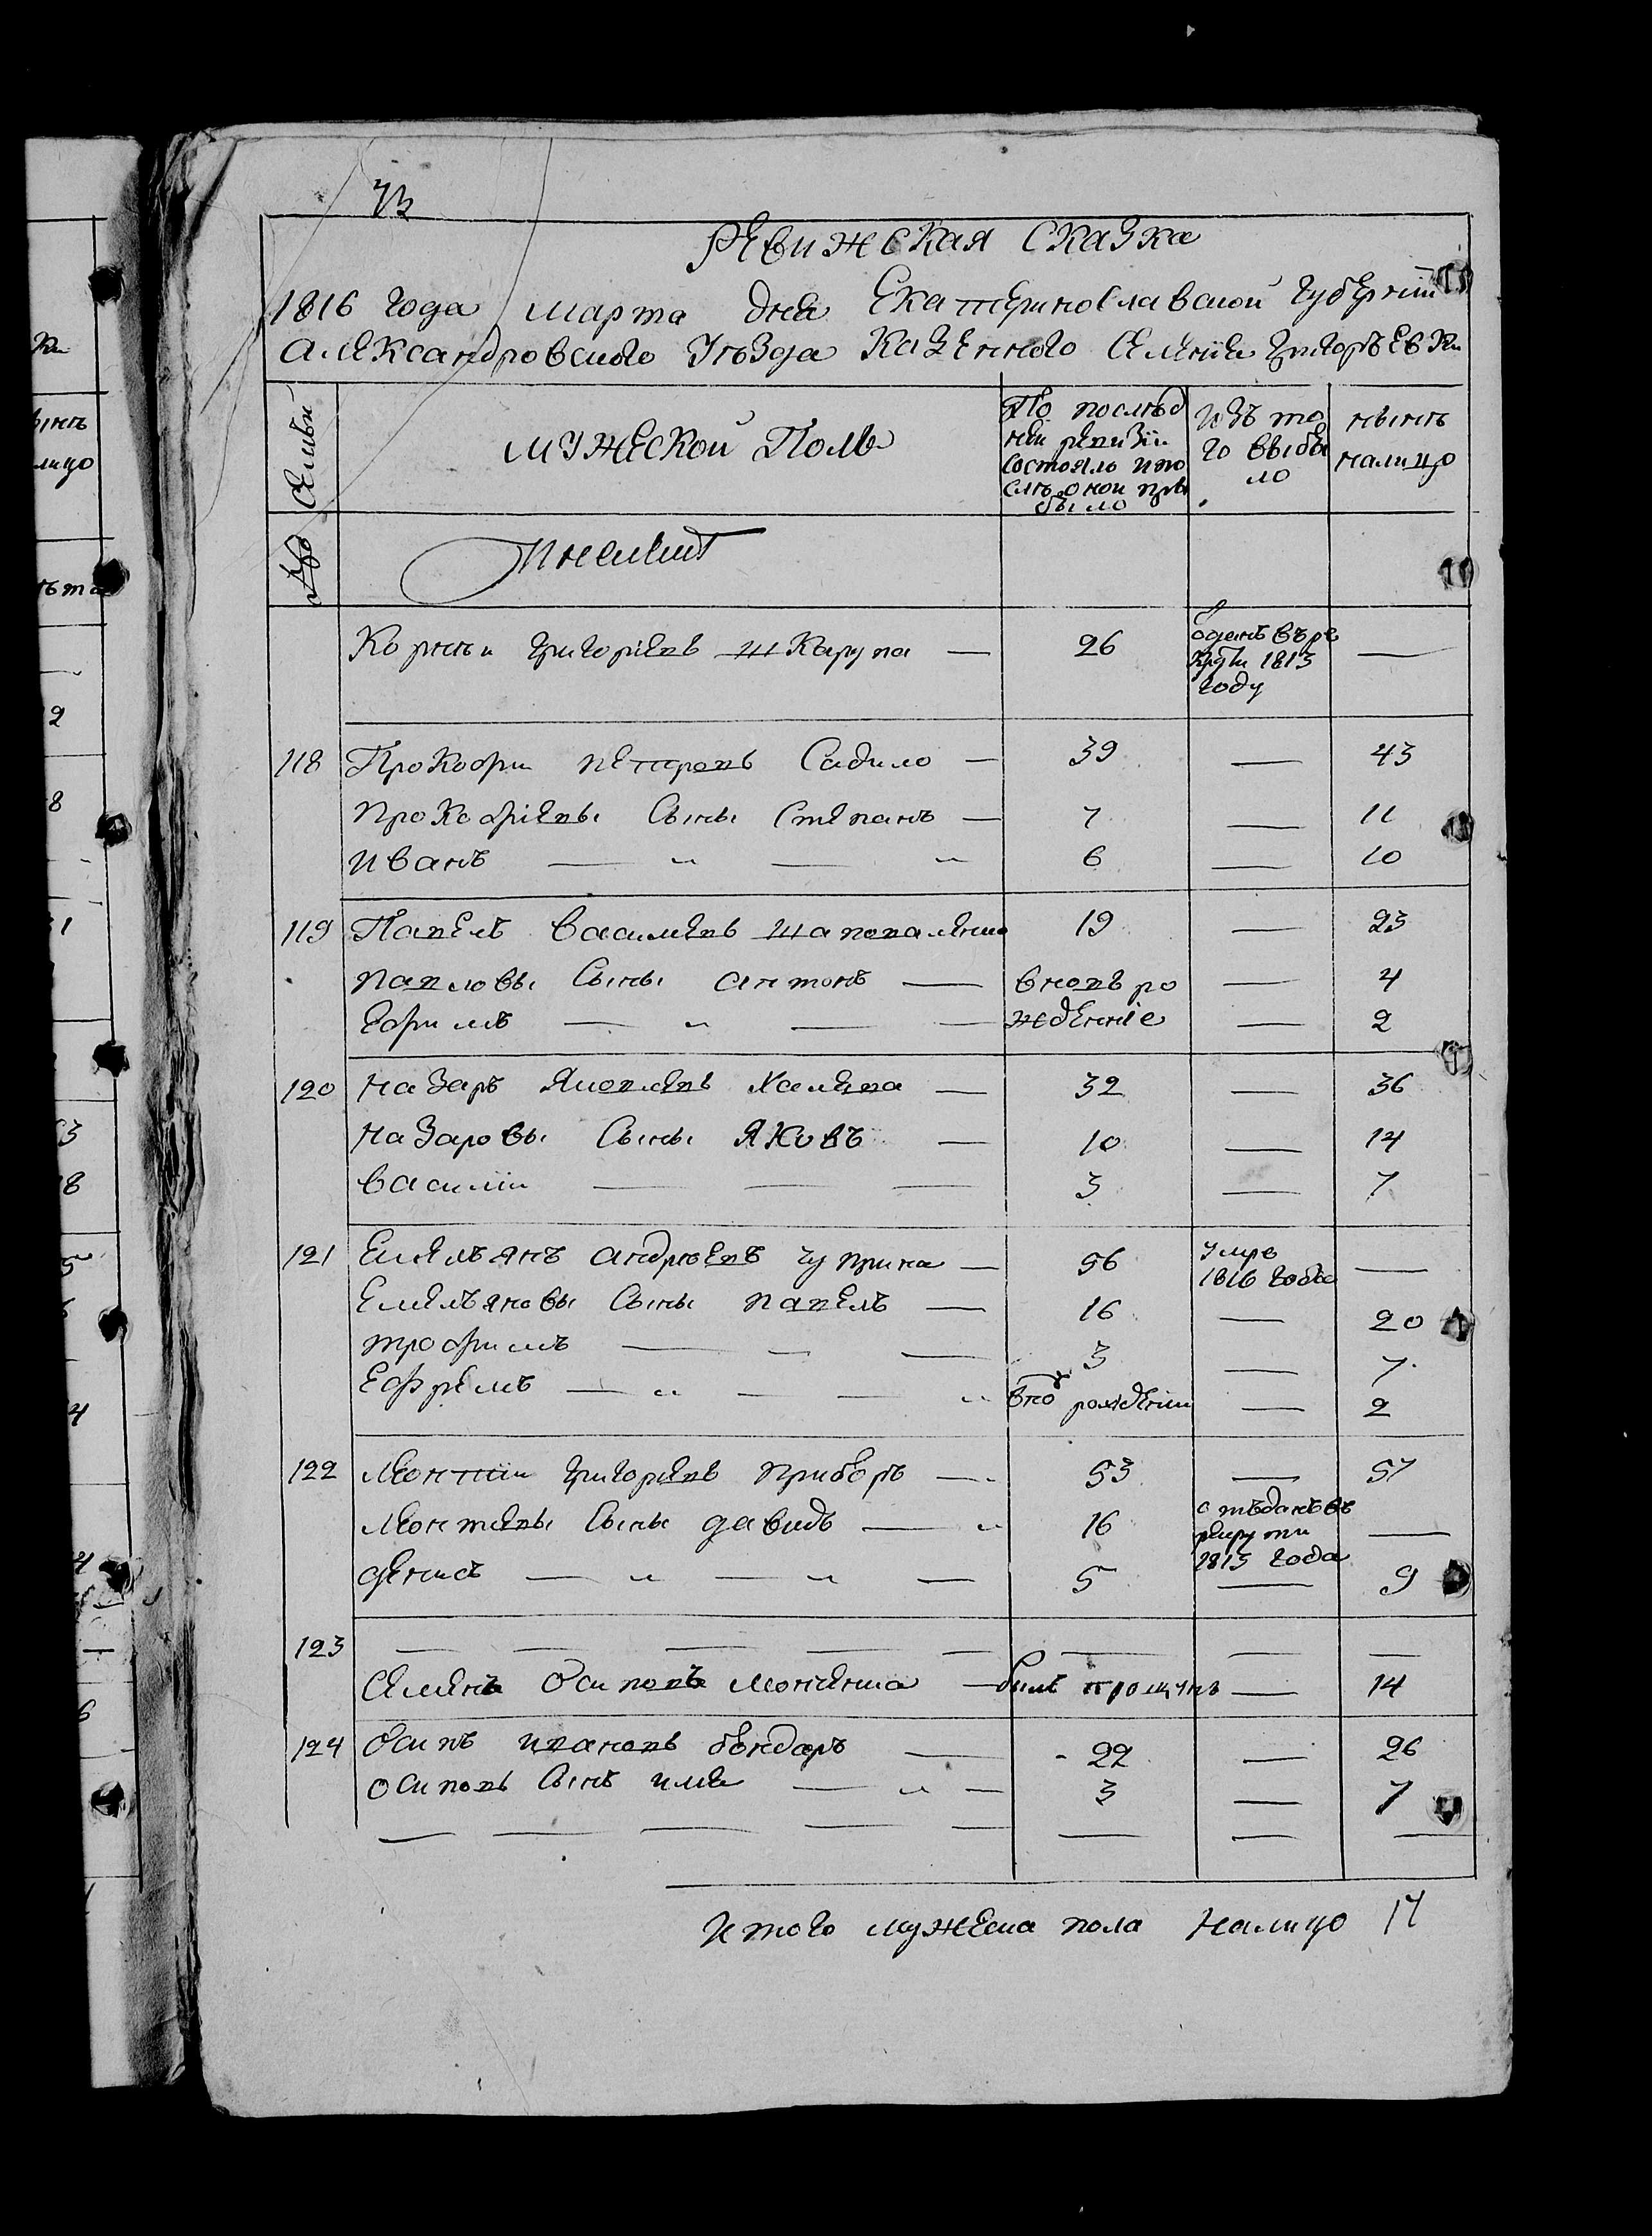 Ревижская сказка
1816 года марта дня Екатеринославской губернии
александровского уезда казенного селения Григорьевки
Семьи
мужеской Полъ
По послед
ней ревизіи
состояло и по
слѣ оной при
было
изъ то
го выбы
ло
нынѣ
налицо
№
лѣта
Корнѣи григоріевъ шкарупа — 26
отданъ въ ре
круты 1813
году —
118 Прокофіи петровъ Садило — 39 — 43
прокофіевы сыны степанъ — 7 — 11
иванъ — „ — „ 6 — 10
119 Павелъ василиевъ шаповаленко 19 — 23
павловы сыны антонъ — вновь ро — 4
Ефимъ — „ — — жденніе — 2
120 назаръ Яковлевъ Халева — 32 — 36
назаровы сыны Яковъ — 10 — 14
василіи — — — 3 — 7
121 Емельянъ андрѣевъ чуприна — 56 умре
1816 года —
Емельяновы сыны павелъ — 16 — 20
трофимъ — — — 3 — 7
Ефремъ — „ — — „ внов рожденіи — 2
122 Леонтіи григориевъ прибор — 53 — 57
Леонтиевы сыны давидъ — „ 16 отъданъ въ
рекруты
1813 года —
денисъ — „ — „ — 5 — 9
123 — — — — — — — —
Семенъ Осиповъ — былъ пропущенъ — 14
124 Осипъ ивановъ бондаръ — 22 — 26
осиповъ сынъ илия — „ — 3 — 7
— — — — — — — —
итого мужеска пола налицо 17